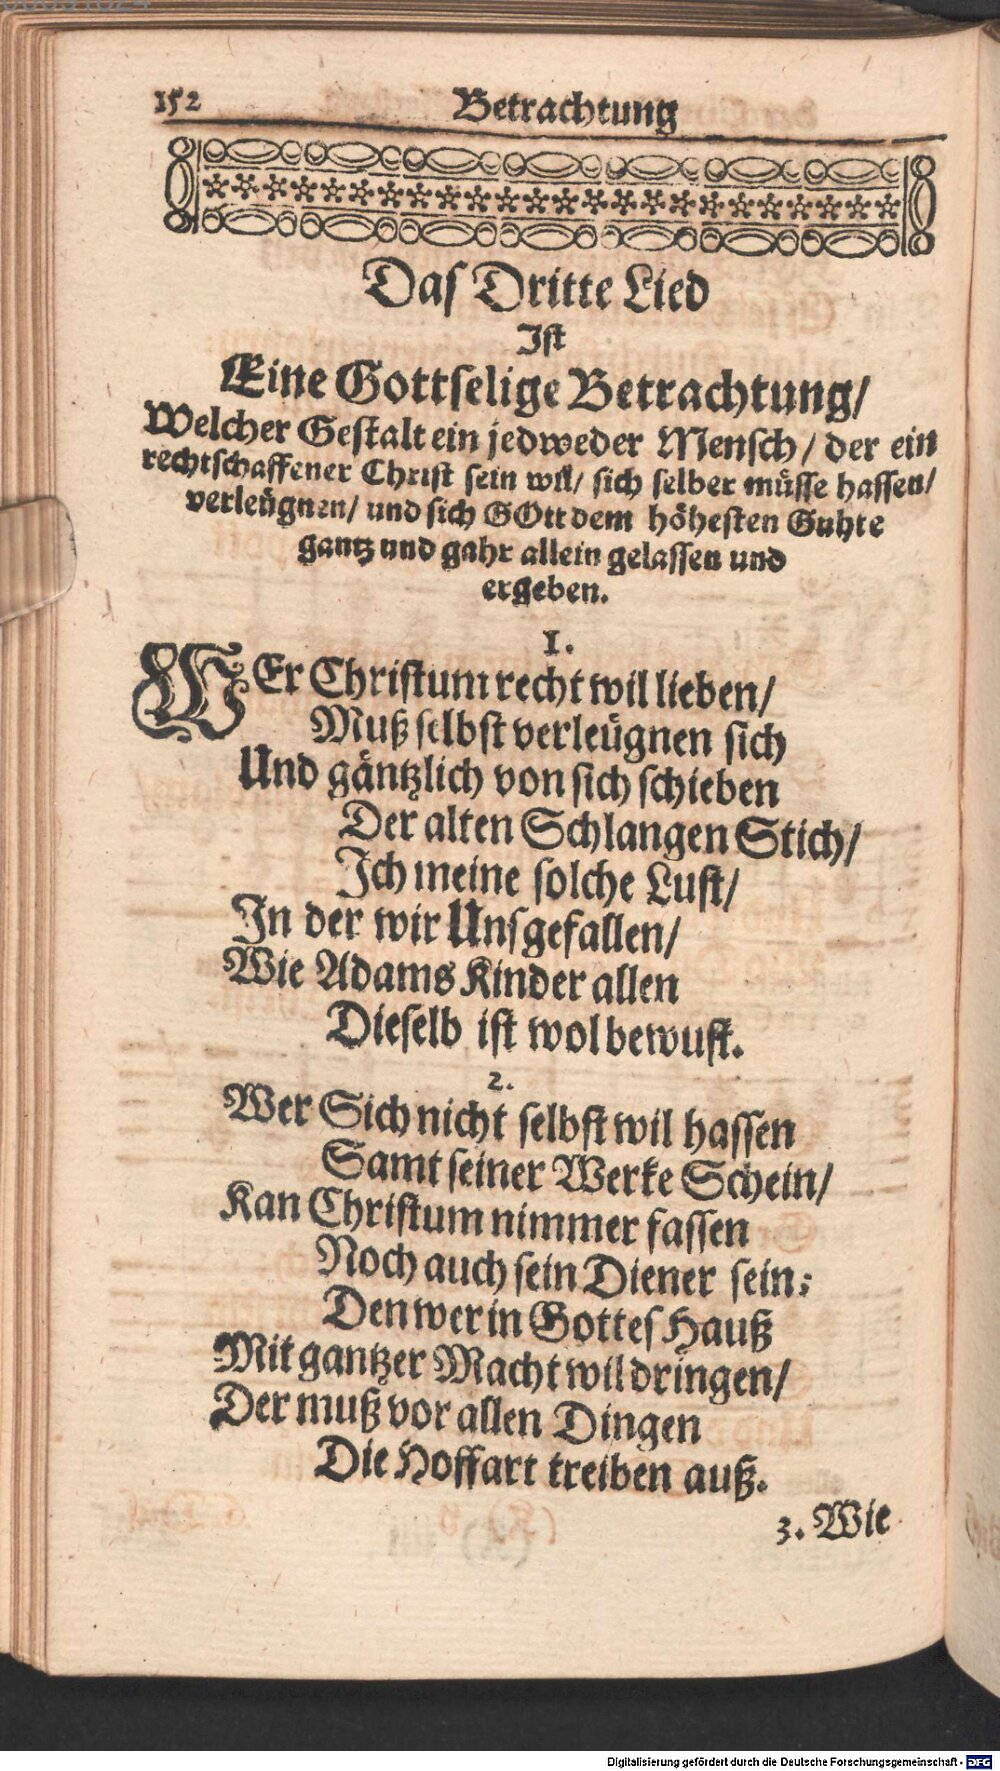 152 Betrachtung
Das Dritte Lied
Ist
Eine Gottselige Betrachtung/
Welcher Gestalt ein jedweder Mensch/ der ein
rechtschaffener Christ sein wil/ sich selber müsse hassen/
verleügnen/ und sich GOtt dem höhesten Guhte
gantz und gahr allein gelassen und
ergeben.
1.
WEr Christum recht wil lieben/
Muß selbst verleügnen sich
Und gäntzlich von sich schieben
Der alten Schlangen Stich/
Ich meine solche Lust/
In der wir Uns gefallen/
Wie Adams Kinder allen
Dieselb ist wol bewust.
2.
Wer Sich nicht selbst wil hassen
Samt seiner Werke Schein/
Kan Christum nimmer fassen
Noch auch sein Diener sein:
Den wer in Gottes Hauß
Mit gantzer Macht wil dringen/
Der muß vor allen Dingen
Die Hoffart treiben auß.
3. Wie
Digitalisierung gefördert durch die Deutsche Forschungsgemeinschaft - DFG